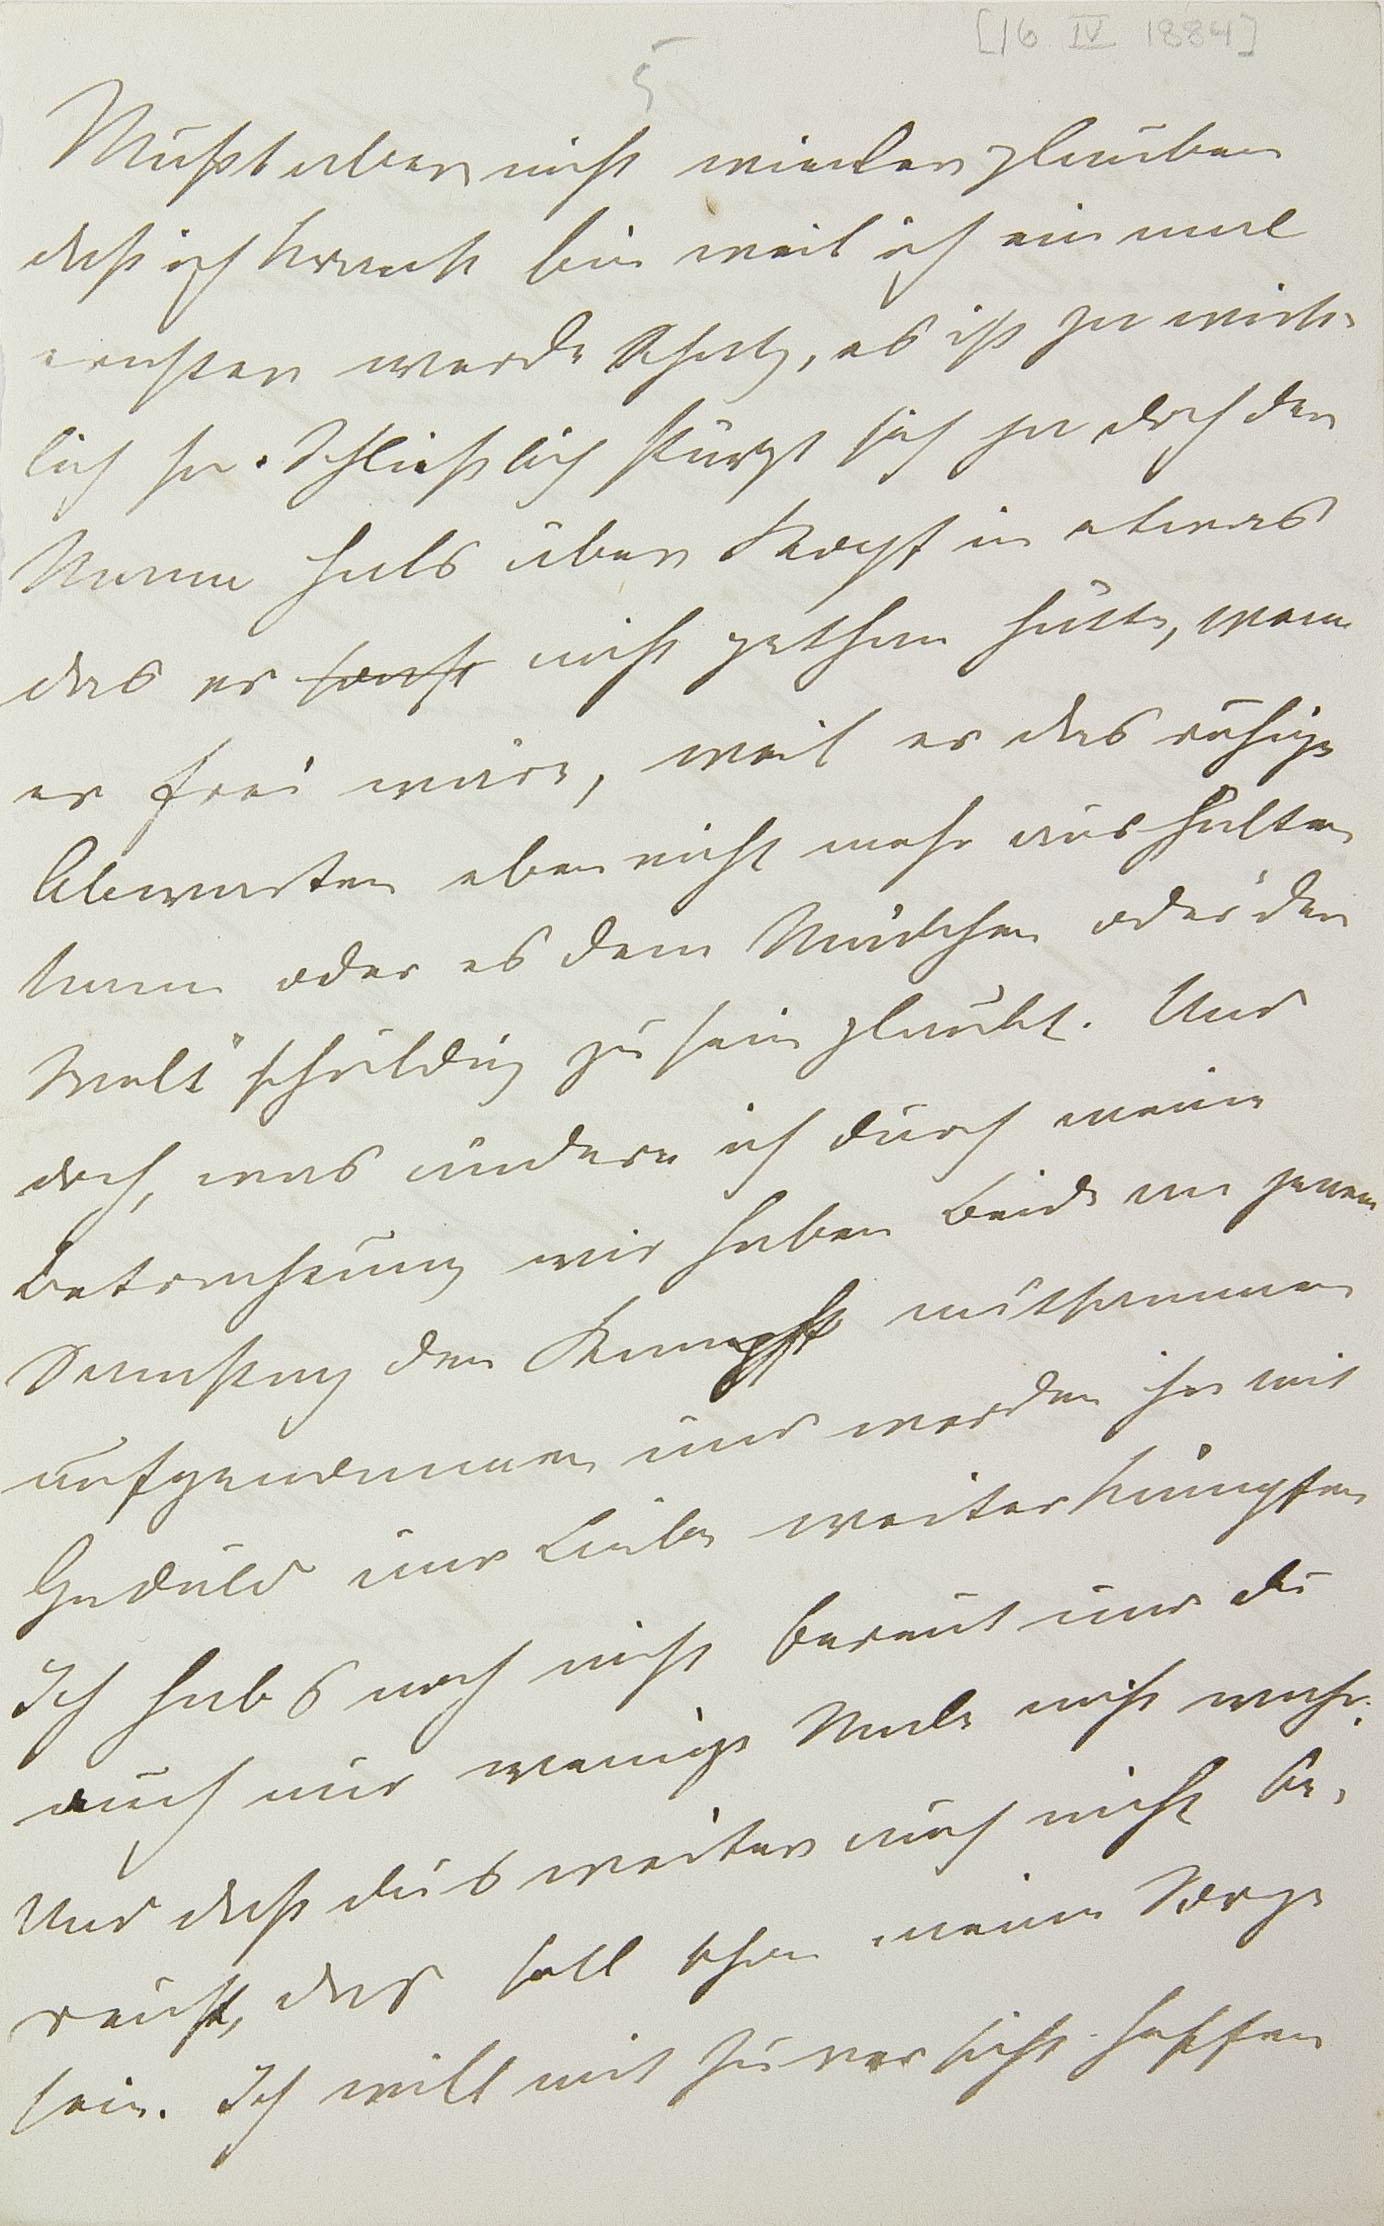 [16 IV 1884]
5
Mußt aber nicht wieder glauben
daß ich krank bin weil ich ein mal
ernster werde Schatz, es ist ja wirk-
lich so. Schließlich stürzt sich ja doch der
Mann Hals über Kopf in etwas
das er sonst nicht gethan hätte, wenn
er frei wäre, weil er das ruhige
Abwarten eben nicht mehr aushalten
kann oder es dem Mädchen oder „der
Welt“ schuldig zu sein glaubt. Und
doch, was ändere ich durch meine
Betrachtung wir haben Beide an jenem
Samstag den Kampf mitsammen
aufgenommen und werden ihn mit
Geduld und Liebe weiter kämpfen
Ich hab's noch nicht bereut und du
auch nur wenige Male nicht wahr.
Und daß du's weiter auch nicht be-
reust, das soll schon meine Sorge
sein. Ich will mit Zuversicht hoffen